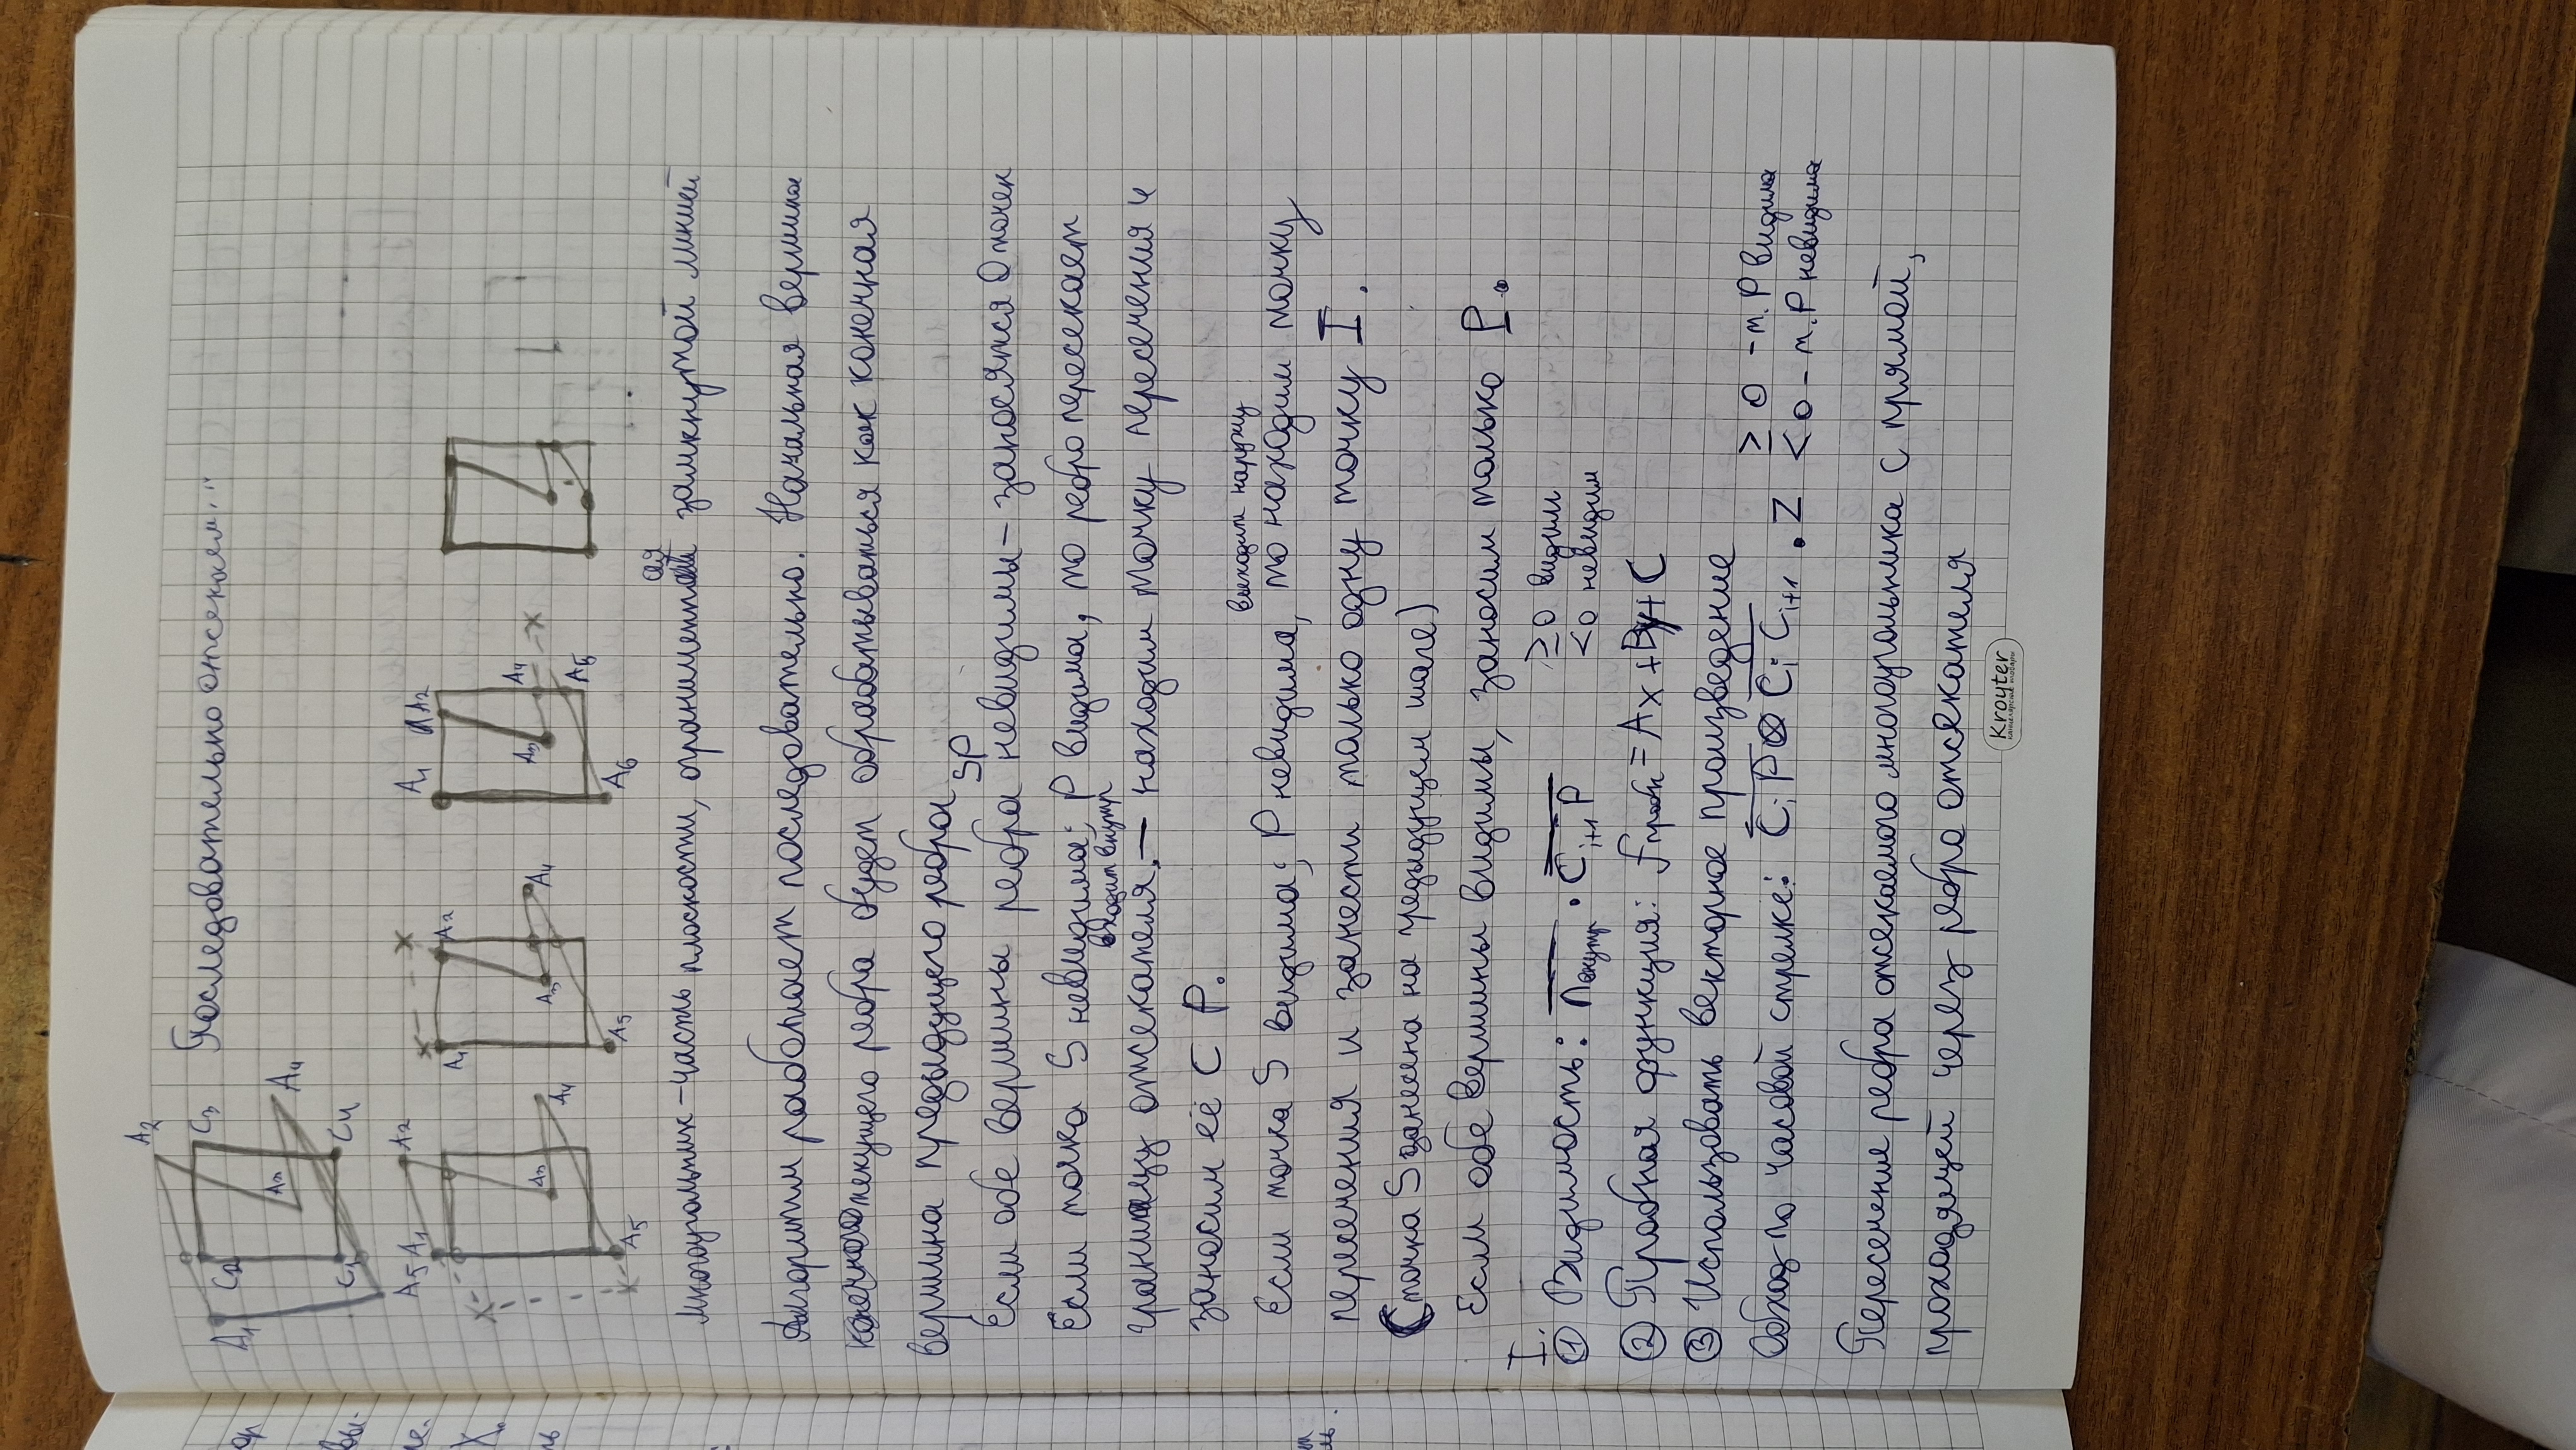 A2
A1 C2 C3 Последовательно отсекаем...
A3 A4
C1 C4
A5 A1 A2 A1 A2 A1 A2
A3 A4 A3 A4 A3 A4
A5 A5 A6 A5
Многоугольник – часть плоскости, ограниченная замкнутой линией
Алгоритм работает последовательно. Начальная вершина
текущего ребра будет обрабатываться как конечная
вершина предыдущего ребра
Если обе вершины ребра SP невидимы – заносятся 0 точек
Если точка S невидима; P видима, то ребро пересекает
входит внутр
границу отсекателя. – находим точку пересечения и
заносим её с P.
выходит наружу
Если точка S видима; P невидима, то находим точку
пересечения и занести только одну точку I.
(точка S занесена на предыдущем шаге)
Если обе вершины видимы, заносим только P.
I.
① Видимость: n внутр · C i+1 P ≥0 видим
<0 невидим
② Пробная функция: f проб = Ax + By + C
③ Использовать векторное произведение
Обход по часовой стрелке: C i P ⊗ C i C i+1 . Z ≥ 0 – т. P видима
< 0 – т. P невидима
Пересечение ребра отсекаемого многоугольника с прямой,
проходящей через ребро отсекателя
Kroyter
канцелярские товары